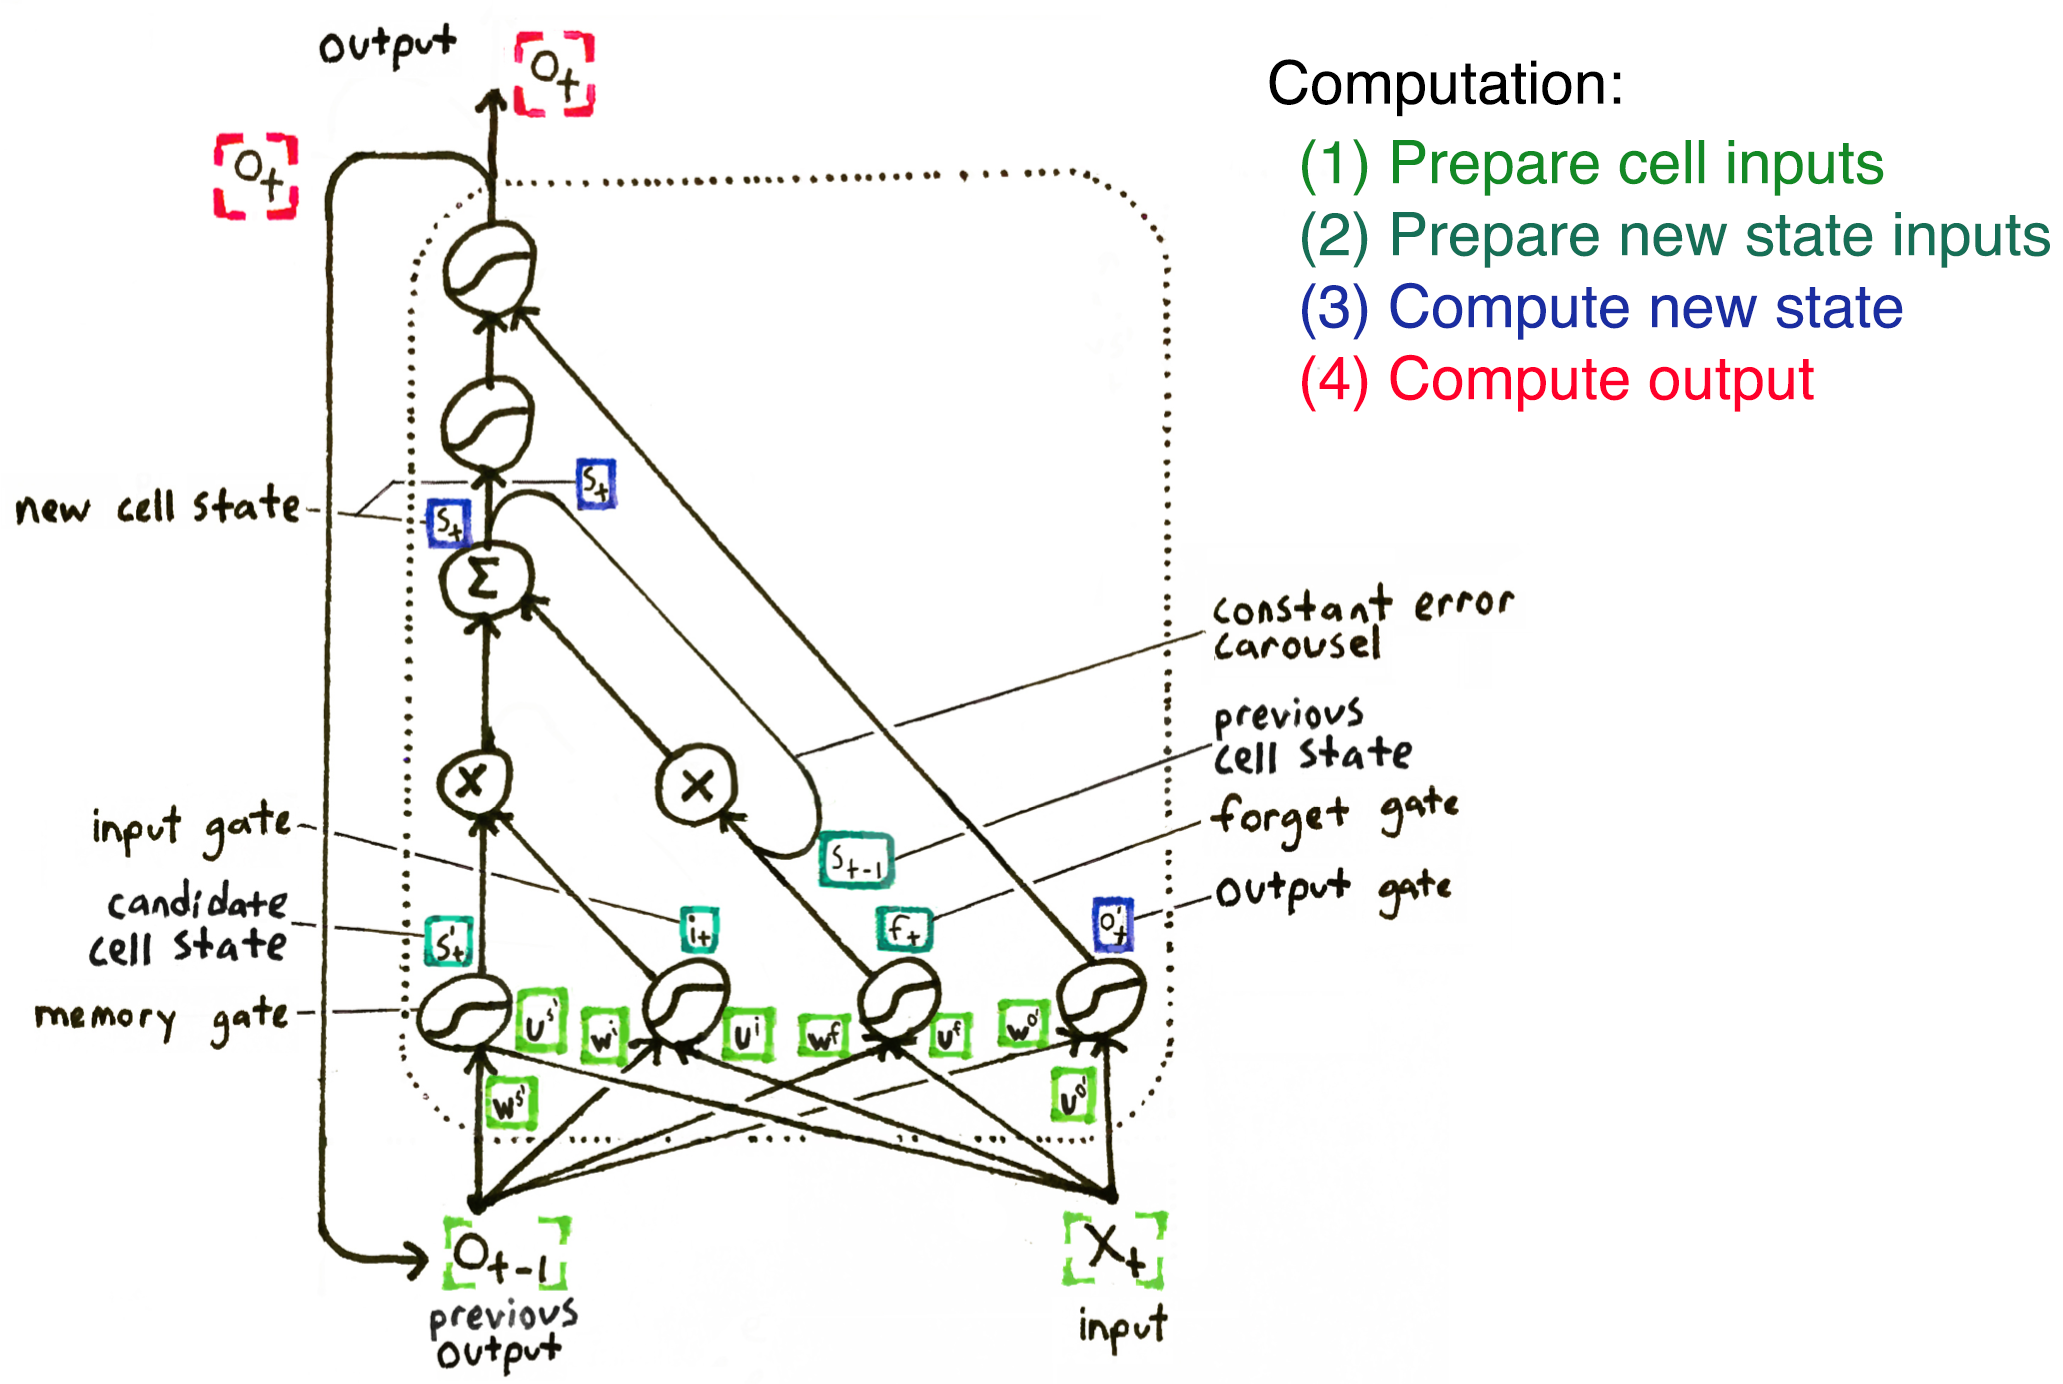 output
O_t
O_t
Computation:
(1) Prepare cell inputs
(2) Prepare new state inputs
(3) Compute new state
(4) Compute output
S_t
new cell state
S_t
Σ
constant error
carousel
previous
cell state
X
X
input gate
forget gate
S_t-1
output gate
candidate
cell state
S'_t
i_t
f_t
o'_t
memory gate
U^s'
W^i
U^i
W^f
U^f
W^o'
W^s'
U^o'
O_t-1
X_t
previous
output
input